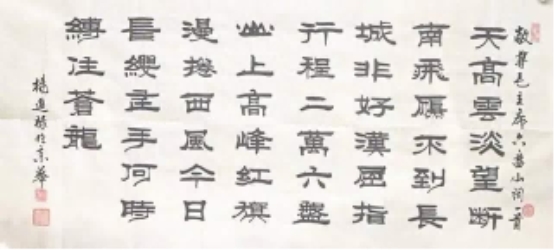 敬毛主席六盘山词一首
天高雲淡望斷
南飛雁不到長
城非好漢屈指
行程二萬六盤
山上高峰紅旗
漫捲西風今日
長纓在手何時
縛住蒼龍
於京華